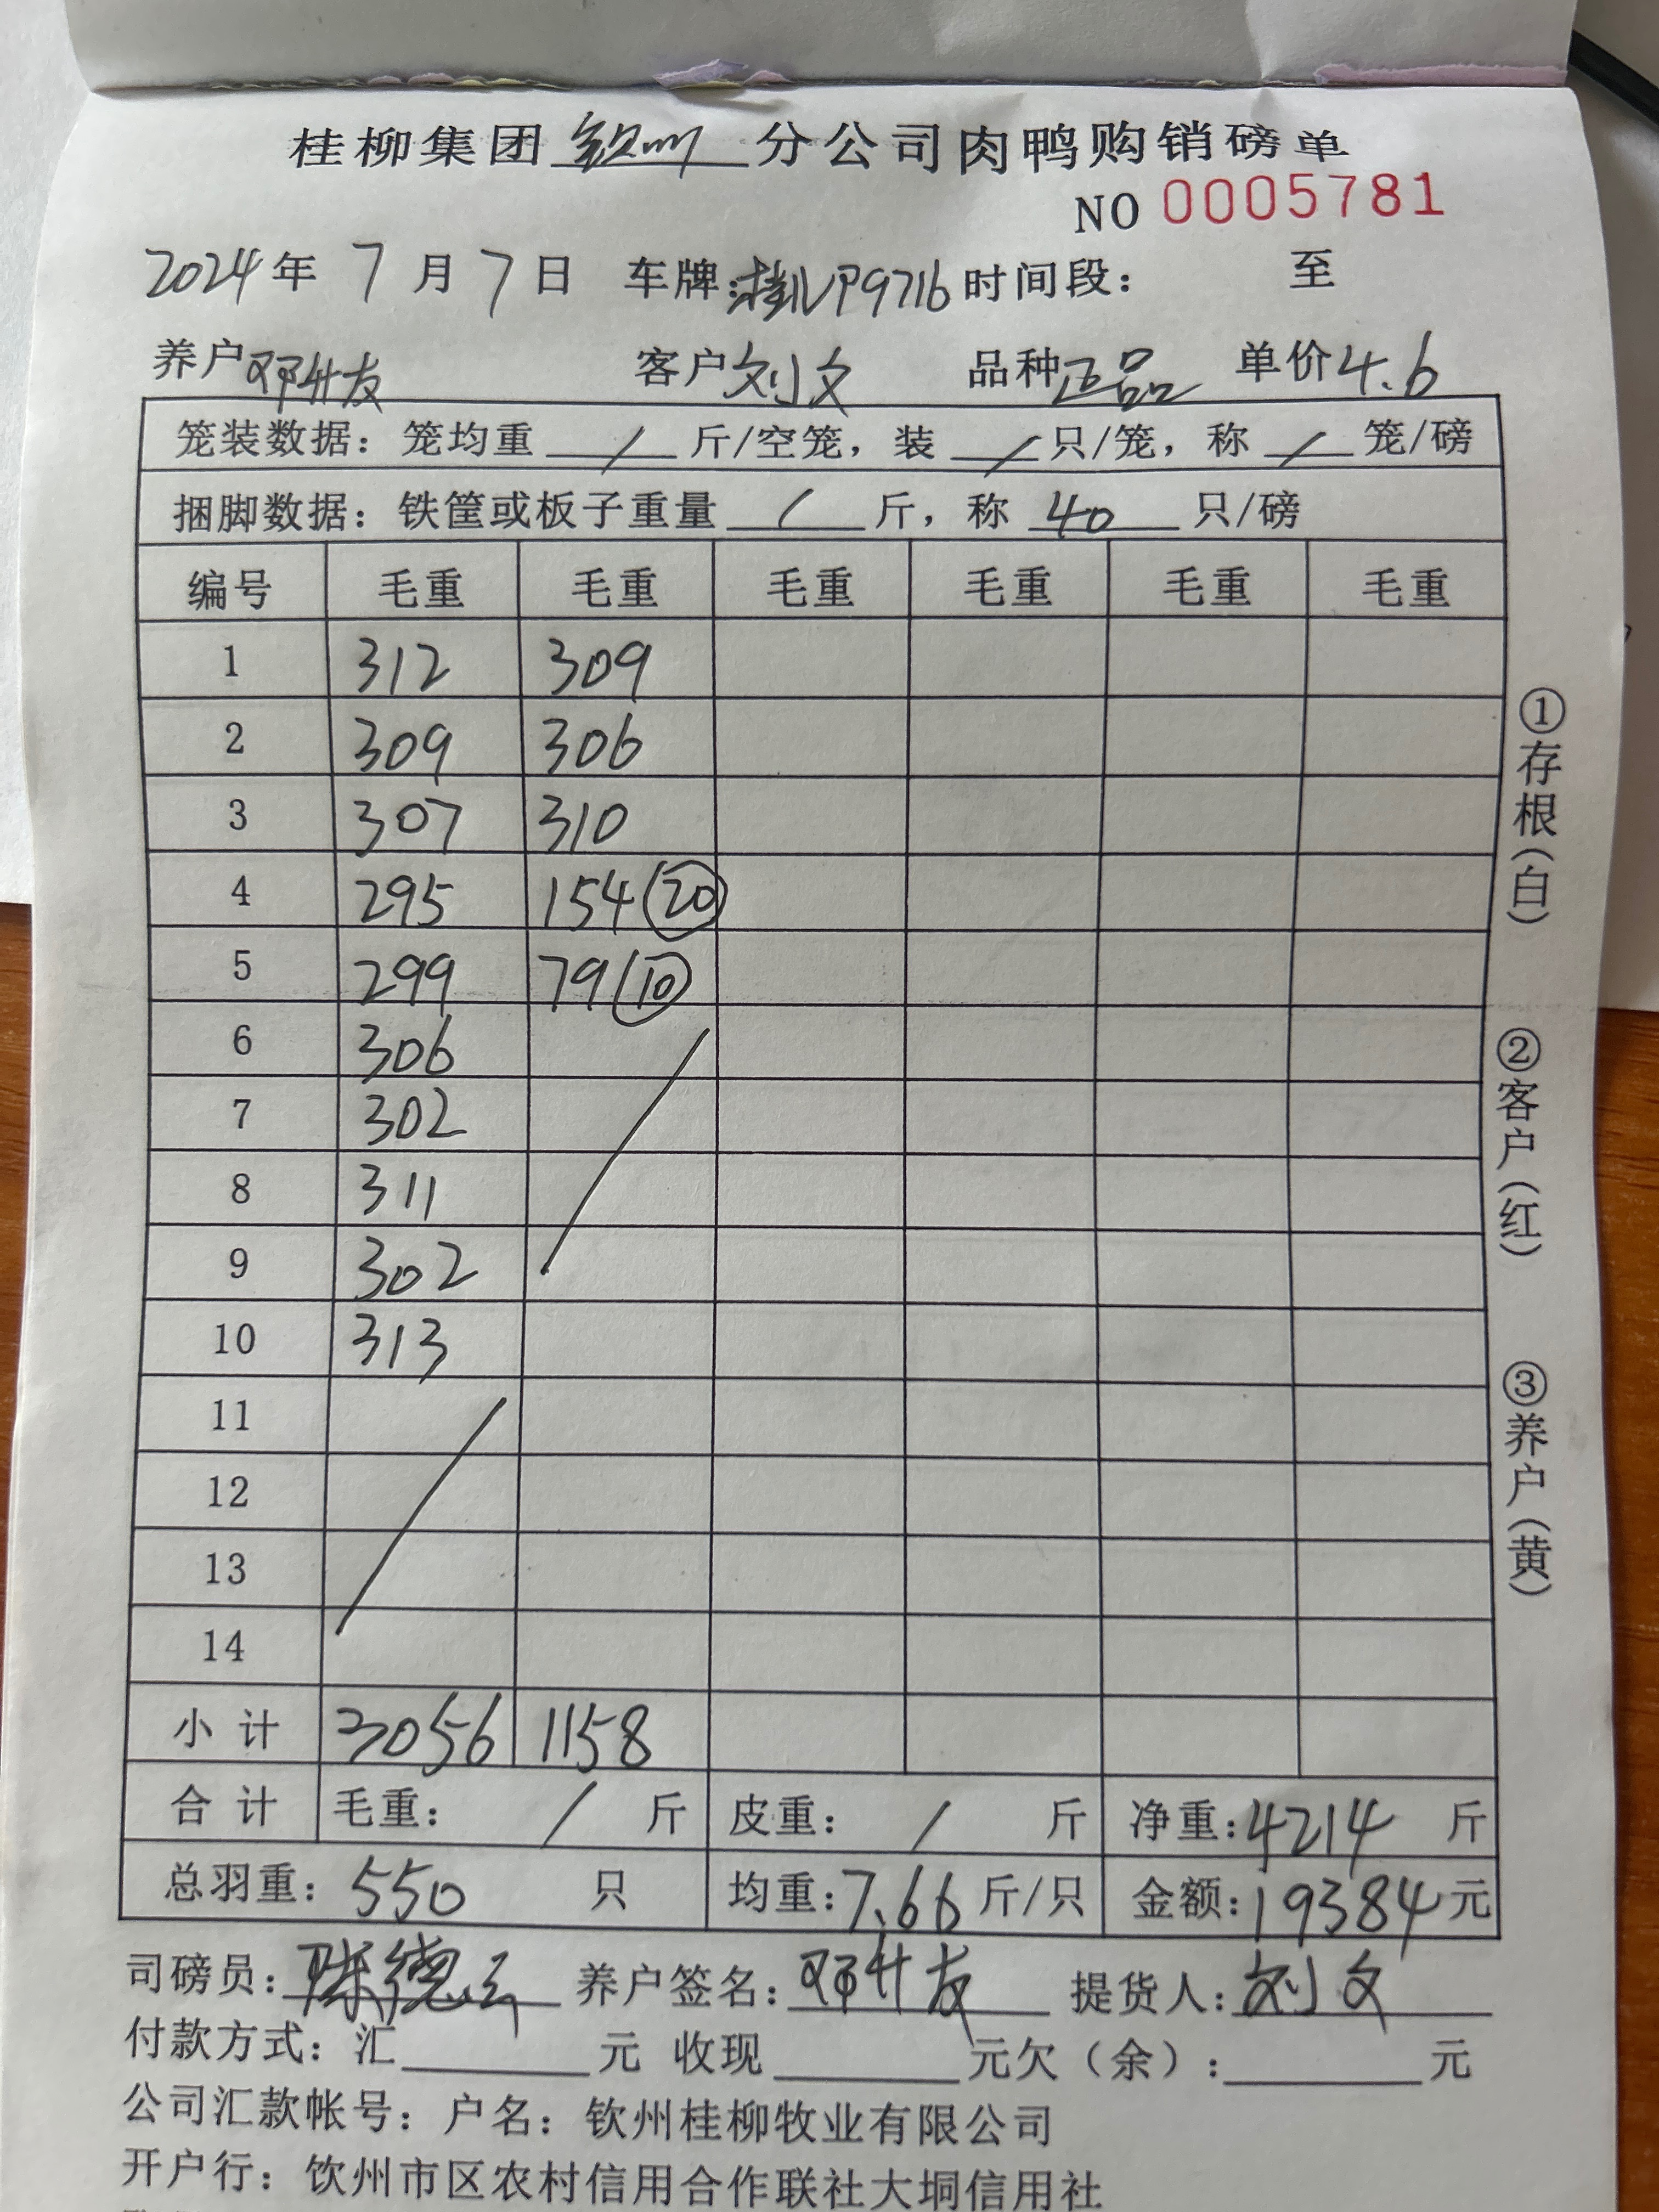 桂柳集团钦州分公司肉鸭购销磅单
NO 0005781
2024年 7月 7日 车牌:桂NP9716 时间段: 至
养户邓升友 客户刘文 品种正品 单价4.6
笼装数据:笼均重 / 斤/空笼,装 / 只/笼,称 / 笼/磅
捆脚数据:铁筐或板子重量 / 斤,称 40 只/磅
编号 毛重 毛重 毛重 毛重 毛重 毛重
1 312 309
2 309 306
3 307 310
4 295 154 (20)
5 299 79 (10)
6 306
7 302
8 311
9 302
10 313
11
12
13
14
小计 3056 1158
合计 毛重: / 斤 皮重: / 斤 净重:4214 斤
总羽重:550 只 均重:7.66 斤/只 金额:19384元
司磅员:陈德云 养户签名:邓升友 提货人:刘文
付款方式:汇 元 收现 元欠(余): 元
公司汇款帐号:户名:钦州桂柳牧业有限公司
开户行:钦州市区农村信用合作联社大垌信用社
①存根(白)
②客户(红)
③养户(黄)